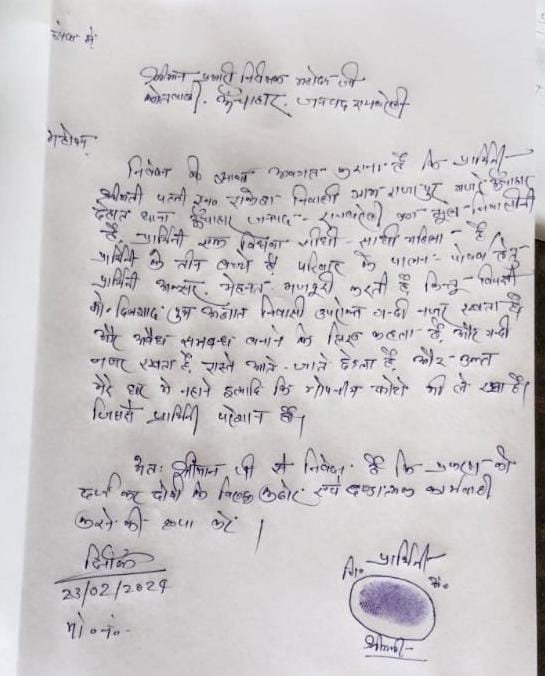 सेवा में
श्रीमान प्रभारी निरीक्षक महोदय जी
कोतवाली. ऊँचाहार. जनपद रायबरेली
महोदय,
निवेदन के साथ अवगत कराना है कि प्रार्थिनी
श्रीमती पत्नी स्व० राकेश निवासी ग्राम राजापुर मजरे ऊँचाहार
देहात थाना ऊँचाहार जनपद - रायबरेली का मूल-निवासिनी
है प्रार्थिनी एक विधवा सीधी - साधी महिला - है
प्रार्थिनी के तीन बच्चे हैं परिवार के पालन - पोषण हेतु
प्रार्थिनी अक्सर मेहनत मजदूरी करती है किन्तु विपक्षी
मो. दिलशाद पुत्र निवासी उपरोक्त गन्दी नजर रखता है
और अवैध सम्बन्ध बनाने के लिए कहता है, और गन्दी
नजर रखता है, रास्ते आते - जाते है, और - उक्त
मेरे घर में नहाने इत्यादि कि गोपनीय फोटो भी ले रखा है।
जिससे प्रार्थिनी परेशान है।
अतः श्रीमान जी से निवेदन है कि प्रकरण को
दर्ज कर दोषी के विरुद्ध कठोर एवं दण्डात्मक कार्यवाही
करने की कृपा करें।
दिनाँक
23/02/2024
मो० नं० -
नि० प्रार्थिनी अं०
श्रीमती -